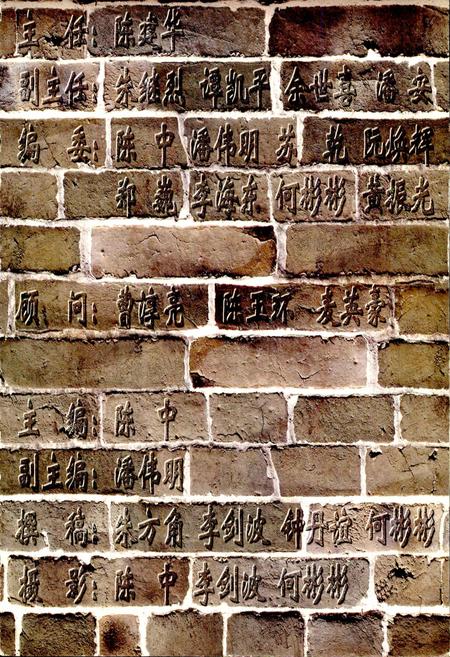 主 任：陈建华
副主任：朱继烈 谭凯平 余世喜 潘 安
编 委：陈 中 潘伟明 苏 乾 阮焕辉
郑 巍 李海东 何彬彬 黄振光
顾 问：曹惇亮 陈玉环 麦英豪
主 编：陈 中
副主编：潘伟明
撰 稿：朱方角 李剑波 钟丹谊 何彬彬
摄 影：陈 中 李剑波 何彬彬